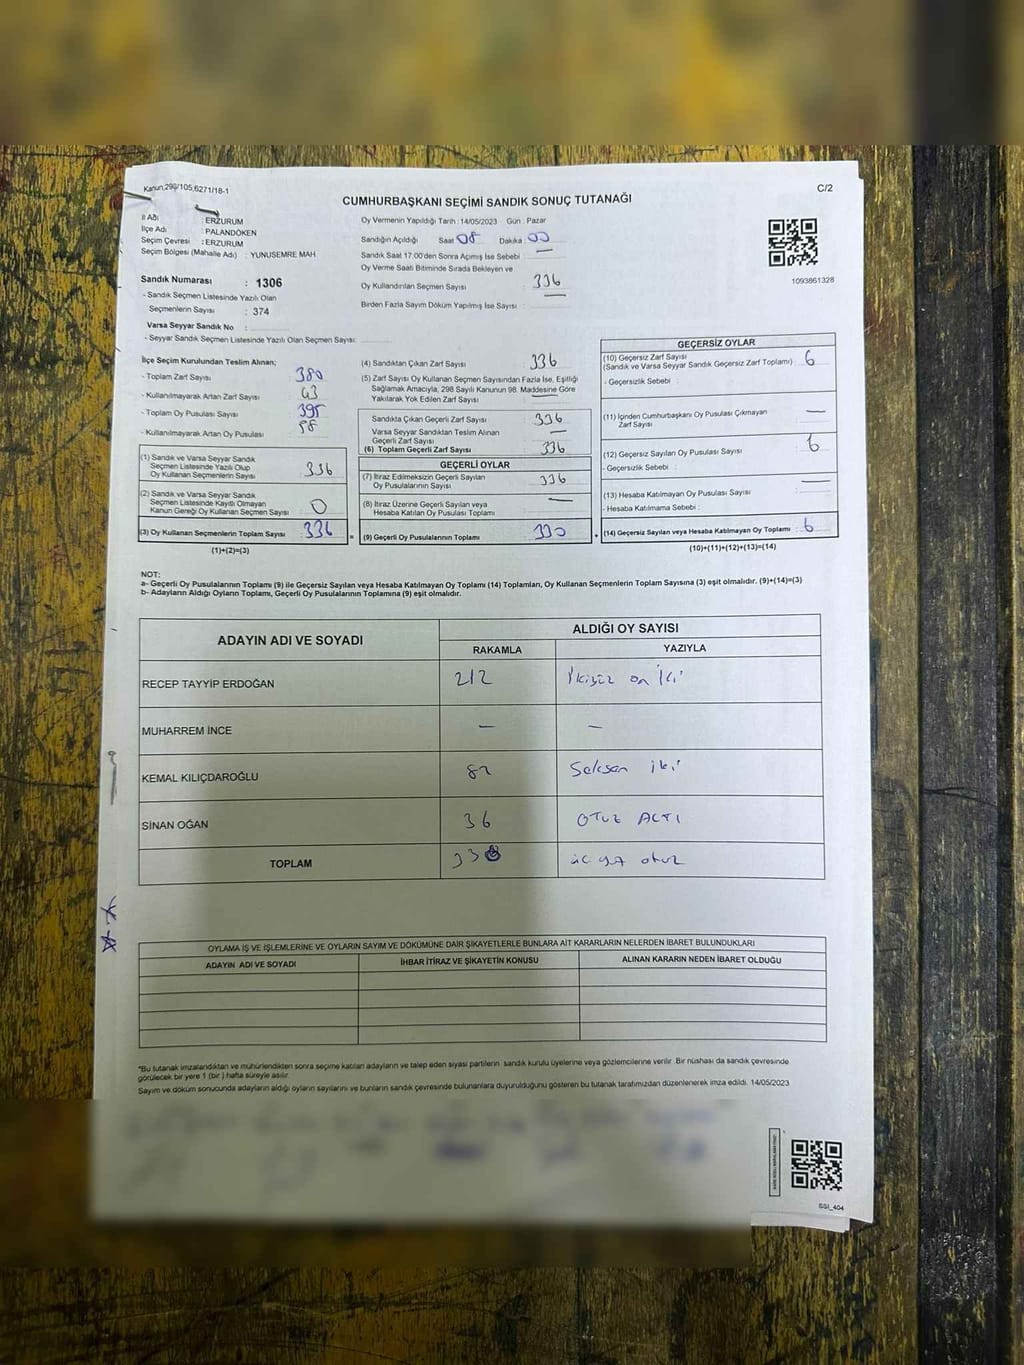 Kanun,298/105,6271/18-1
C/2
CUMHURBAŞKANI SEÇİMİ SANDIK SONUÇ TUTANAĞI
İl Adı : ERZURUM
İlçe Adı : PALANDÖKEN
Seçim Çevresi : ERZURUM
Seçim Bölgesi (Mahalle Adı) : YUNUSEMRE MAH
Sandık Numarası : 1306
- Sandık Seçmen Listesinde Yazılı Olan
Seçmenlerin Sayısı : 374
Varsa Seyyar Sandık No :
- Seyyar Sandık Seçmen Listesinde Yazılı Olan Seçmen Sayısı:
Oy Vermenin Yapıldığı Tarih : 14/05/2023 Gün : Pazar
Sandığın Açıldığı Saat 08 Dakika 00
Sandık Saat 17.00'den Sonra Açımış İse Sebebi
Oy Verme Saati Bitiminde Sırada Bekleyen ve
Oy Kullandırılan Seçmen Sayısı 336
Birden Fazla Sayım Döküm Yapılmış İse Sayısı :
1093861328
İlçe Seçim Kurulundan Teslim Alınan;
- Toplam Zarf Sayısı 380
- Kullanılmayarak Artan Zarf Sayısı 43
- Toplam Oy Pusulası Sayısı 395
- Kullanılmayarak Artan Oy Pusulası
(1) Sandık ve Varsa Seyyar Sandık
Seçmen Listesinde Yazılı Olup
Oy Kullanan Seçmenlerin Sayısı 336
(2) Sandık ve Varsa Seyyar Sandık
Seçmen Listesinde Kayıtlı Olmayan
Kanun Gereği Oy Kullanan Seçmen Sayısı 0
(3) Oy Kullanan Seçmenlerin Toplam Sayısı 336
(1)+(2)=(3)
(4) Sandıktan Çıkan Zarf Sayısı 336
(5) Zarf Sayısı Oy Kullanan Seçmen Sayısından Fazla İse, Eşitliği
Sağlamak Amacıyla, 298 Sayılı Kanunun 98. Maddesine Göre
Yakılarak Yok Edilen Zarf Sayısı —
Sandıkta Çıkan Geçerli Zarf Sayısı 336
Varsa Seyyar Sandıktan Teslim Alınan
Geçerli Zarf Sayısı —
(6) Toplam Geçerli Zarf Sayısı 336
GEÇERLİ OYLAR
(7) İtiraz Edilmeksizin Geçerli Sayılan
Oy Pusulalarının Sayısı 336
(8) İtiraz Üzerine Geçerli Sayılan veya
Hesaba Katılan Oy Pusulası Toplamı —
(9) Geçerli Oy Pusulalarının Toplamı 330
GEÇERSİZ OYLAR
(10) Geçersiz Zarf Sayısı
(Sandık ve Varsa Seyyar Sandık Geçersiz Zarf Toplamı) : 6
- Geçersizlik Sebebi :
(11) İçinden Cumhurbaşkanı Oy Pusulası Çıkmayan
Zarf Sayısı —
(12) Geçersiz Sayılan Oy Pusulası Sayısı : 6
- Geçersizlik Sebebi :
(13) Hesaba Katılmayan Oy Pusulası Sayısı : —
- Hesaba Katılmama Sebebi :
(14) Geçersiz Sayılan veya Hesaba Katılmayan Oy Toplamı : 6
(10)+(11)+(12)+(13)=(14)
NOT:
a- Geçerli Oy Pusulalarının Toplamı (9) ile Geçersiz Sayılan veya Hesaba Katılmayan Oy Toplamı (14) Toplamları, Oy Kullanan Seçmenlerin Toplam Sayısına (3) eşit olmalıdır. (9)+(14)=(3)
b- Adayların Aldığı Oyların Toplamı, Geçerli Oy Pusulalarının Toplamına (9) eşit olmalıdır.
ADAYIN ADI VE SOYADI
ALDIĞI OY SAYISI
RAKAMLA YAZIYLA
RECEP TAYYİP ERDOĞAN 212 İkiyüz on iki
MUHARREM İNCE — —
KEMAL KILIÇDAROĞLU 82 Seksen iki
SİNAN OĞAN 36 OTUZ ALTI
TOPLAM 330 üç yüz otuz
OYLAMA İŞ VE İŞLEMLERİNE VE OYLARIN SAYIM VE DÖKÜMÜNE DAİR ŞİKAYETLERLE BUNLARA AİT KARARLARIN NELERDEN İBARET BULUNDUKLARI
ADAYIN ADI VE SOYADI İHBAR İTİRAZ VE ŞİKAYETİN KONUSU ALINAN KARARIN NEDEN İBARET OLDUĞU
"Bu tutanak imzalandıktan ve mühürlendikten sonra seçime katılan adayların ve talep eden siyasi partilerin sandık kurulu üyelerine veya gözlemcilerine verilir. Bir nüshası da sandık çevresinde
görülecek bir yere 1 (bir ) hafta süreyle asılır.
Sayım ve döküm sonucunda adayların aldığı oyların sayılarını ve bunların sandık çevresinde bulunanlara duyurulduğunu gösteren bu tutanak tarafımızdan düzenlenerek imza edildi. 14/05/2023
SSI_404